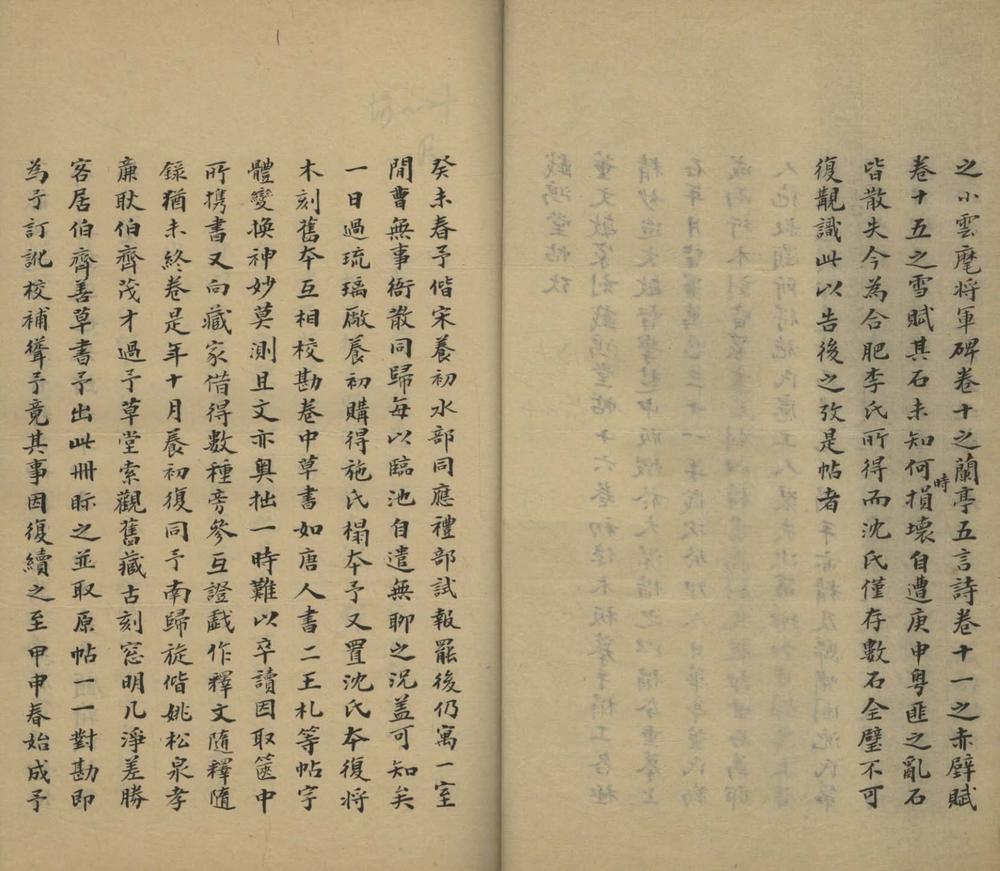 之小雲麾將軍碑卷十之蘭亭五言詩卷十一之赤壁賦
卷十五之雪賦其石未知何時損壞自遭庚申粵匪之亂石
皆散失今為合肥李氏所得而沈氏僅存數石全璧不可
復覯識此以告後之攷是帖者
癸未春予偕宋養初水部同應禮部試報罷後仍寓一室
閒曹無事衙散同歸每以臨池自遣無聊之況盖可知矣
一日過琉璃廠養初購得施氏榻本予又置沈氏本復將
木刻舊本互相校勘卷中草書如唐人書二王札等帖字
體變換神妙莫測且文亦奥拙一時難以卒讀因取篋中
所携書又向藏家借得數種旁參互證戲作釋文隨釋隨
錄猶未終卷是年十月養初復同予南歸旋偕姚松泉孝
廉耿伯齊茂才過予草堂索觀舊藏古刻窓明几淨差勝
客居伯齊善草書予出此冊眎之並取原帖一一對勘即
為予訂訛校補聳予竟其事因復續之至甲申春始成予